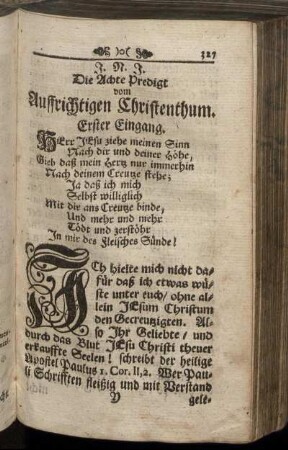 327
J. N. J.
Die Achte Predigt
vom
Auffrichtigen Christenthum.
Erster Eingang.
HErr JEsu ziehe meinen Sinn
Nach dir und deiner Höhe,
Gieb daß mein Hertz nur immerhin
Nach deinem Creutze stehe;
Ja daß ich mich
Selbst williglich
Mit dir ans Creutze binde,
Und mehr und mehr
Tödt und zerstöhr
In mir des Fleisches Sünde!
ICh hielte mich nicht da-
für daß ich etwas wü-
ste unter euch/ ohne al-
lein JEsum Christum
den Gecreutzigten. Al-
so Ihr Geliebte/ und
durch das Blut JEsu Christi theuer
erkauffte Seelen! schreibt der heilige
Apostel Paulus 1. Cor. II, 2. Wer Pau-
li Schrifften fleißig und mit Verstand
V gele-